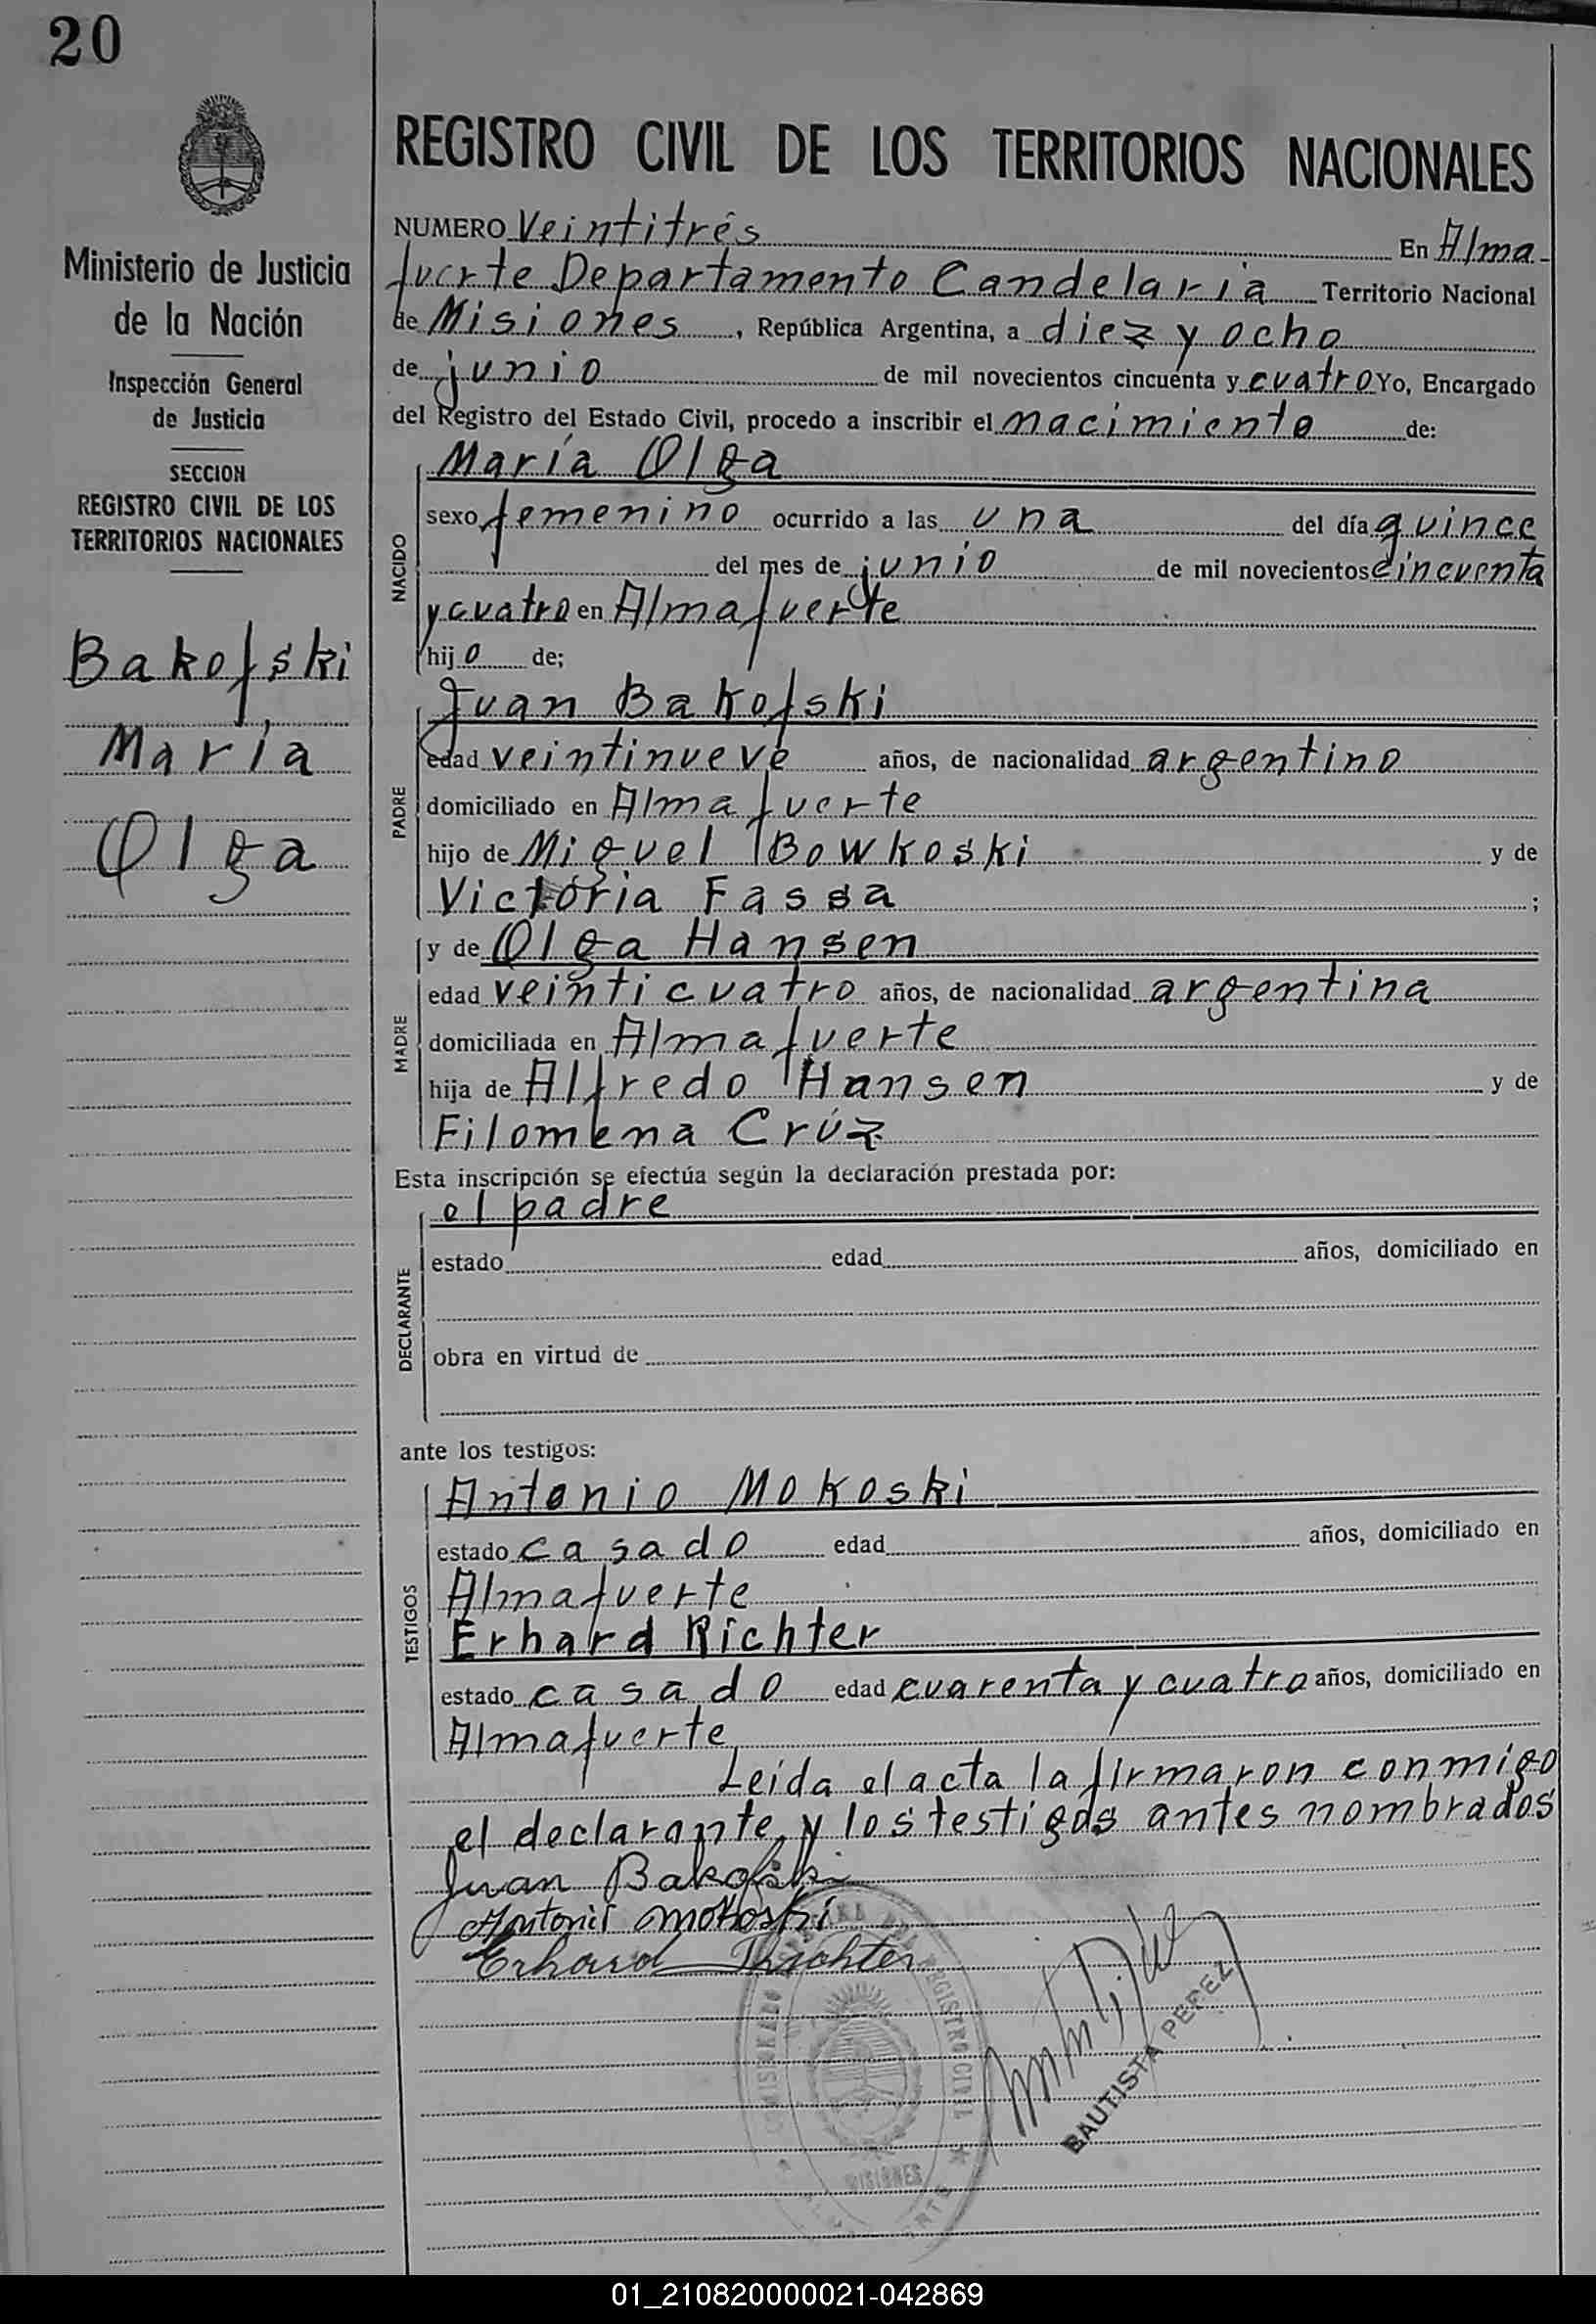 20
Ministerio de Justicia
de la Nación
Inspección General
de Justicia
SECCION
REGISTRO CIVIL DE LOS
TERRITORIOS NACIONALES
Bakofski
María
Olga
REGISTRO CIVIL DE LOS TERRITORIOS NACIONALES
NUMERO Veintitrés En Alma
fuerte Departamento Candelaria Territorio Nacional
de Misiones, República Argentina, a diez y ocho
de junio de mil novecientos cincuenta y cuatro Yo, Encargado
del Registro del Estado Civil, procedo a inscribir el nacimiento de:
NACIDO
María Olga
sexo femenino ocurrido a las una del día quince
del mes de junio de mil novecientos cincuenta
y cuatro en Almafuerte
hijo de;
PADRE
Juan Bakofski
edad veintinueve años, de nacionalidad argentino
domiciliado en Almafuerte
hijo de Miguel Bowkoski y de
Victoria Fassa ;
MADRE
y de Olga Hansen
edad veinticuatro años, de nacionalidad argentina
domiciliada en Almafuerte
hija de Alfredo Hansen y de
Filomena Crúz
Esta inscripción se efectúa según la declaración prestada por:
DECLARANTE
el padre
estado edad años, domiciliado en
obra en virtud de
ante los testigos:
TESTIGOS
Antonio Mokoski
estado casado edad años, domiciliado en
Almafuerte
Erhard Richter
estado casado edad cuarenta y cuatro años, domiciliado en
Almafuerte
Leída el acta la firmaron conmigo
el declarante y los testigos antes nombrados
Juan Bakofski
Antonio Mokoski
Erhard Richter
REGISTRO CIVIL
MISIONES
BAUTISTA PEREZ
01_210820000021-042869